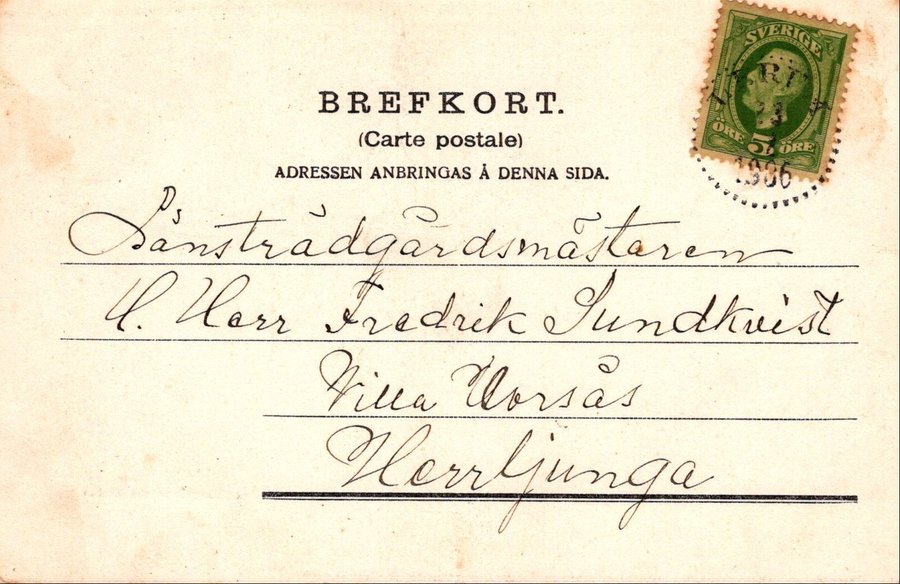 BREFKORT.
(Carte postale)
ADRESSEN ANBRINGAS Å DENNA SIDA.
SVERIGE
ÖRE 5 ÖRE
1906
Länsträdgårdsmästaren
H. Herr Fredrik Sundkvist
Villa Norsås
Herrljunga